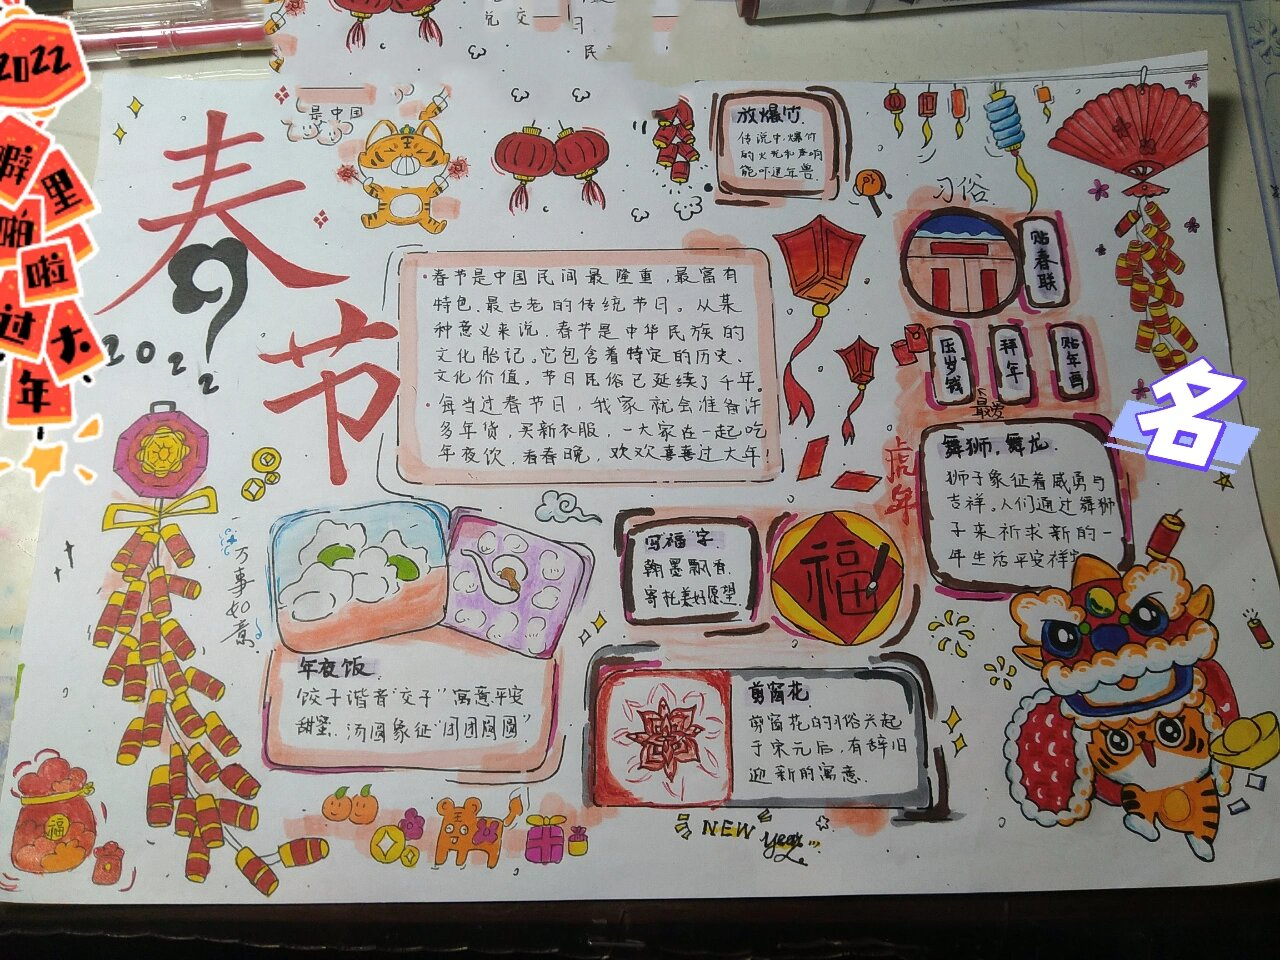 2022
噼里
啪啦
过大
年
说 交
日
民
是中国
春节
2022
放爆竹
传说中,爆竹
的火光和声响
能吓退年兽.
习俗
贴春联
压岁钱
拜年
贴年画
最爱
虎年
·春节是中国民间最隆重,最富有
特色、最古老的传统节日。从某
种意义来说,春节是中华民族的
文化胎记,它包含着特定的历史、
文化价值,节日民俗已延续了千年。
·每当过春节日,我家就会准备许
多年货,买新衣服,一大家在一起吃
年夜饮,看春晚,欢欢喜喜过大年!
名
舞狮,舞龙
狮子象征着威勇与
吉祥,人们通过舞狮
子来祈求新的一
年生活平安祥
万事如意
写福字
翰墨飘香,
寄托美好愿望.
福
年夜饭
饺子谐音"交子"寓意平安
甜蜜.汤圆象征"团团圆圆"
剪窗花
剪窗花的习俗兴起
于宋元后,有辞旧
迎新的寓意.
福
NEW
year